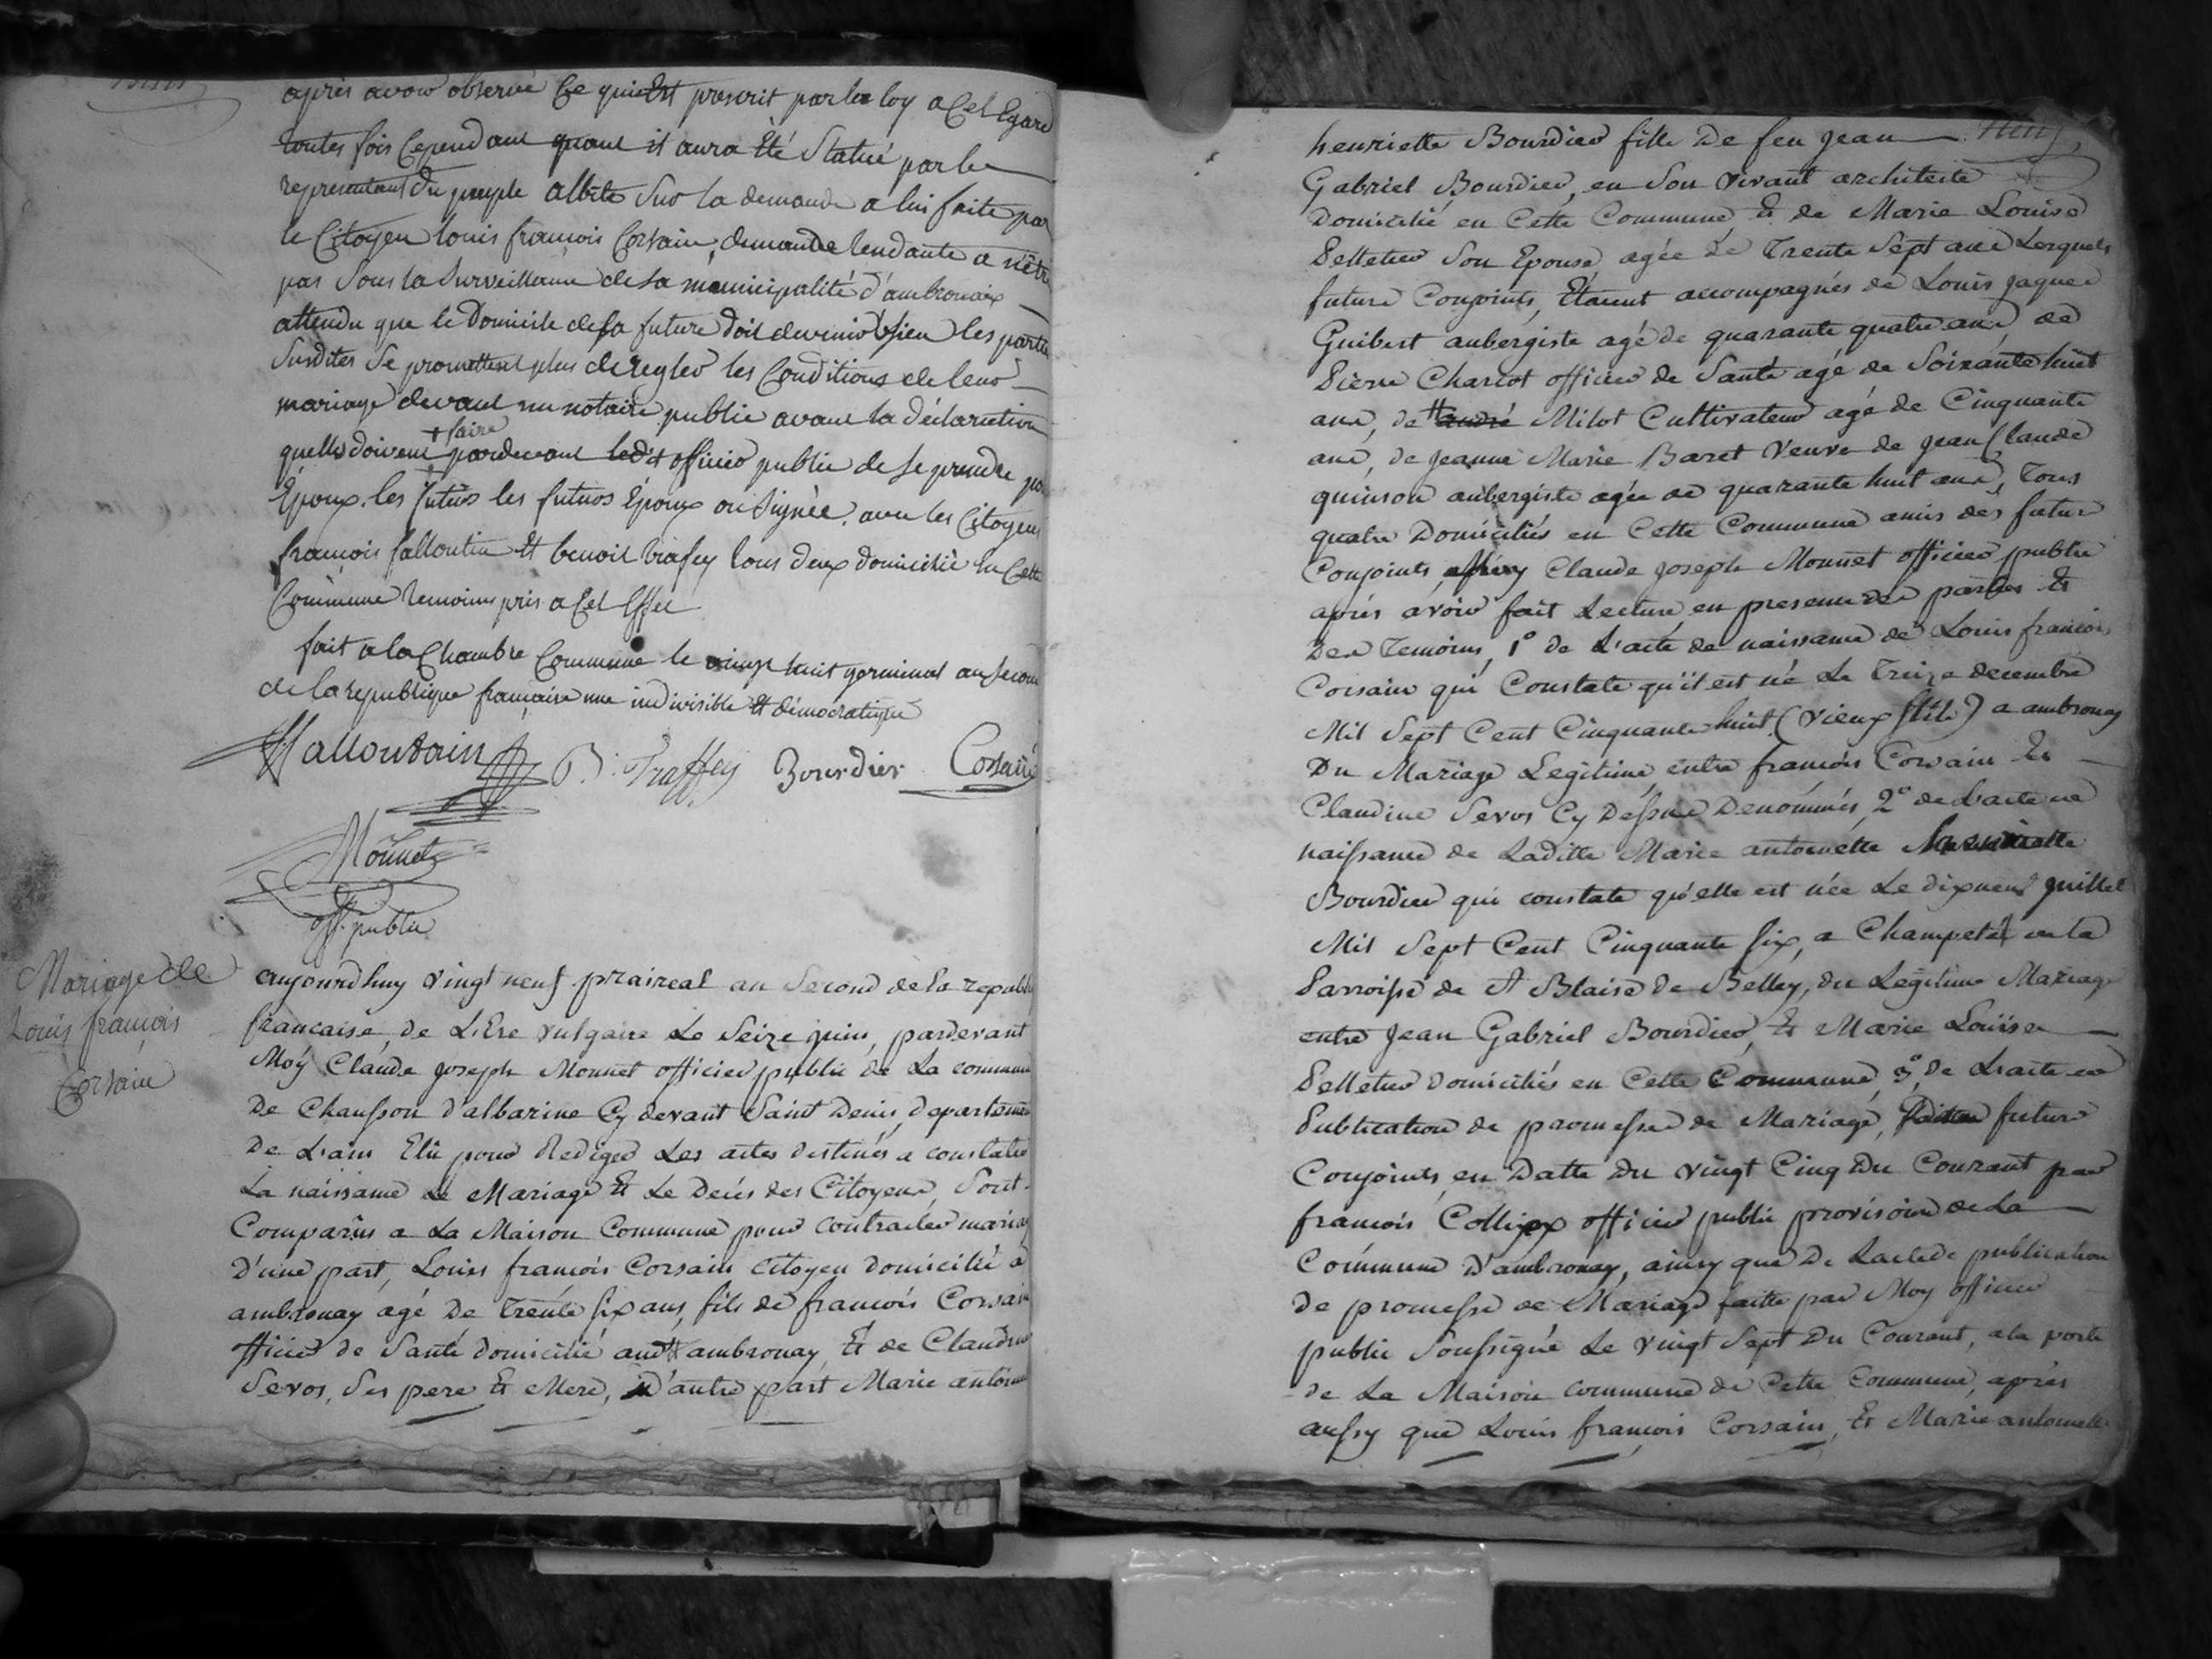 après avoir observé Ce qui Est prescrit par la loy a Cet Egard
toutes fois Cependant quant il aura Été Statué par le
representant Du peuple albite Sur la demande a lui faite par
le Citoyen louis françois Corsain, demande tendante a n'être
pas Sous la Surveillance de la municipalité d'ambronaix
attendu que le Domicile de la future doit devenir le sien les parties
Susdites Se promettent plus de regler les Conditions de leur
mariage devant un notaire public avant la déclaration
+ faire
quelles doivent + pardevant ledit officier public de se prendre pour
Époux. les futurs Époux ont Signée. avec les Citoyens
françois falloutin Et benoit trafey tous deux domicilié En Cette
Commune temoins pris a Cet Effet
fait a la Chambre Commune le vingt huit germinal an second
de la republique française une indivisible Et démocratique
B. Traffey Bourdier Corsain
Monnet
off. public
Mariage de
Louis françois
Corsain
aujourdhuy vingt neuf praireal an Second de la republi
francaise, de L'Ere vulgaire Le Seize juin, pardevant
Moÿ Claude joseph Monnet officier public de La commune
De Chausson d'albarine Cy devant Saint Denis, departemen
De L'ain Elû pour Rediger Les actes destinés a constater
La naissance Le Mariage Et Le Decés des Citoyens, Sont
Comparus a La Maison Commune pour contracter mariag
D'une part, Louis françois Corsain citoyen domicilié a
ambronay agé De Trente six ans, fils de françois Corsain
officier de Santé domicilié audt ambronay, Et de Claudine
Sevos, Ses pere Et Mere, D'autre part Marie antoine
henriette Bourdier fille De feu jean
Gabriel Bourdier, en Son vivant architecte
Domicilié en Cette Commune Et de Marie Louise
Pelletier Son Epouse agée de Trente Sept ans Lesquels
futurs Conjoints, Etaient accompagnés de Louis jaques
Guibert aubergiste agé de quarante quatre ans, de
Pierre Charcot officier de Santé agé de Soixante huit
ans, de andré Milot Cultivateur agé de Cinquante
ans, de jeanne Marie Baret veuve de jean Claude
quinson aubergiste agée de quarante huit ans, Tous
quatre Domiciliés en Cette Commune amis des futurs
Conjoints, Claude joseph Monnet officier public
aprés avoir fait Lecture en presence des parties Et
Des Temoins, 1° de L'acte de naissance de Louis françois
Corsain qui Constate qu'il est né Le Treize decembre
Mil Sept Cent Cinquante huit (vieux stile) a ambronay
Du Mariage Legitime entre françois Corsain Et
Claudine Sevos Cy Dessus Denommés, 2° de L'acte de
naissance de Laditte Marie antoinette henriette
Bourdier qui constate qu'elle est née Le dixneuf juillet
Mil Sept Cent Cinquante six, a Champetel en la
Parroisse de St Blaise de Belley, du Legitime Mariage
entre jean Gabriel Bourdier, Et Marie Louise
Pelletier domiciliés en Cette Commune, 3° de L'acte de
Publication de promesse de Mariage, futurs
Conjoints, en Datte Du vingt Cinq Du Courant par
françois Collixx officier public provisoire de La
Commune D'ambronay, ainsy que De Lacte de publication
de promesse de Mariage faitte par Moy officier
public Soussigné Le vingt Sept Du Courant, a la porte
de La Maison commune de Cette Commune, aprés
aussy que Louis françois Corsain, Et Marie antoinette